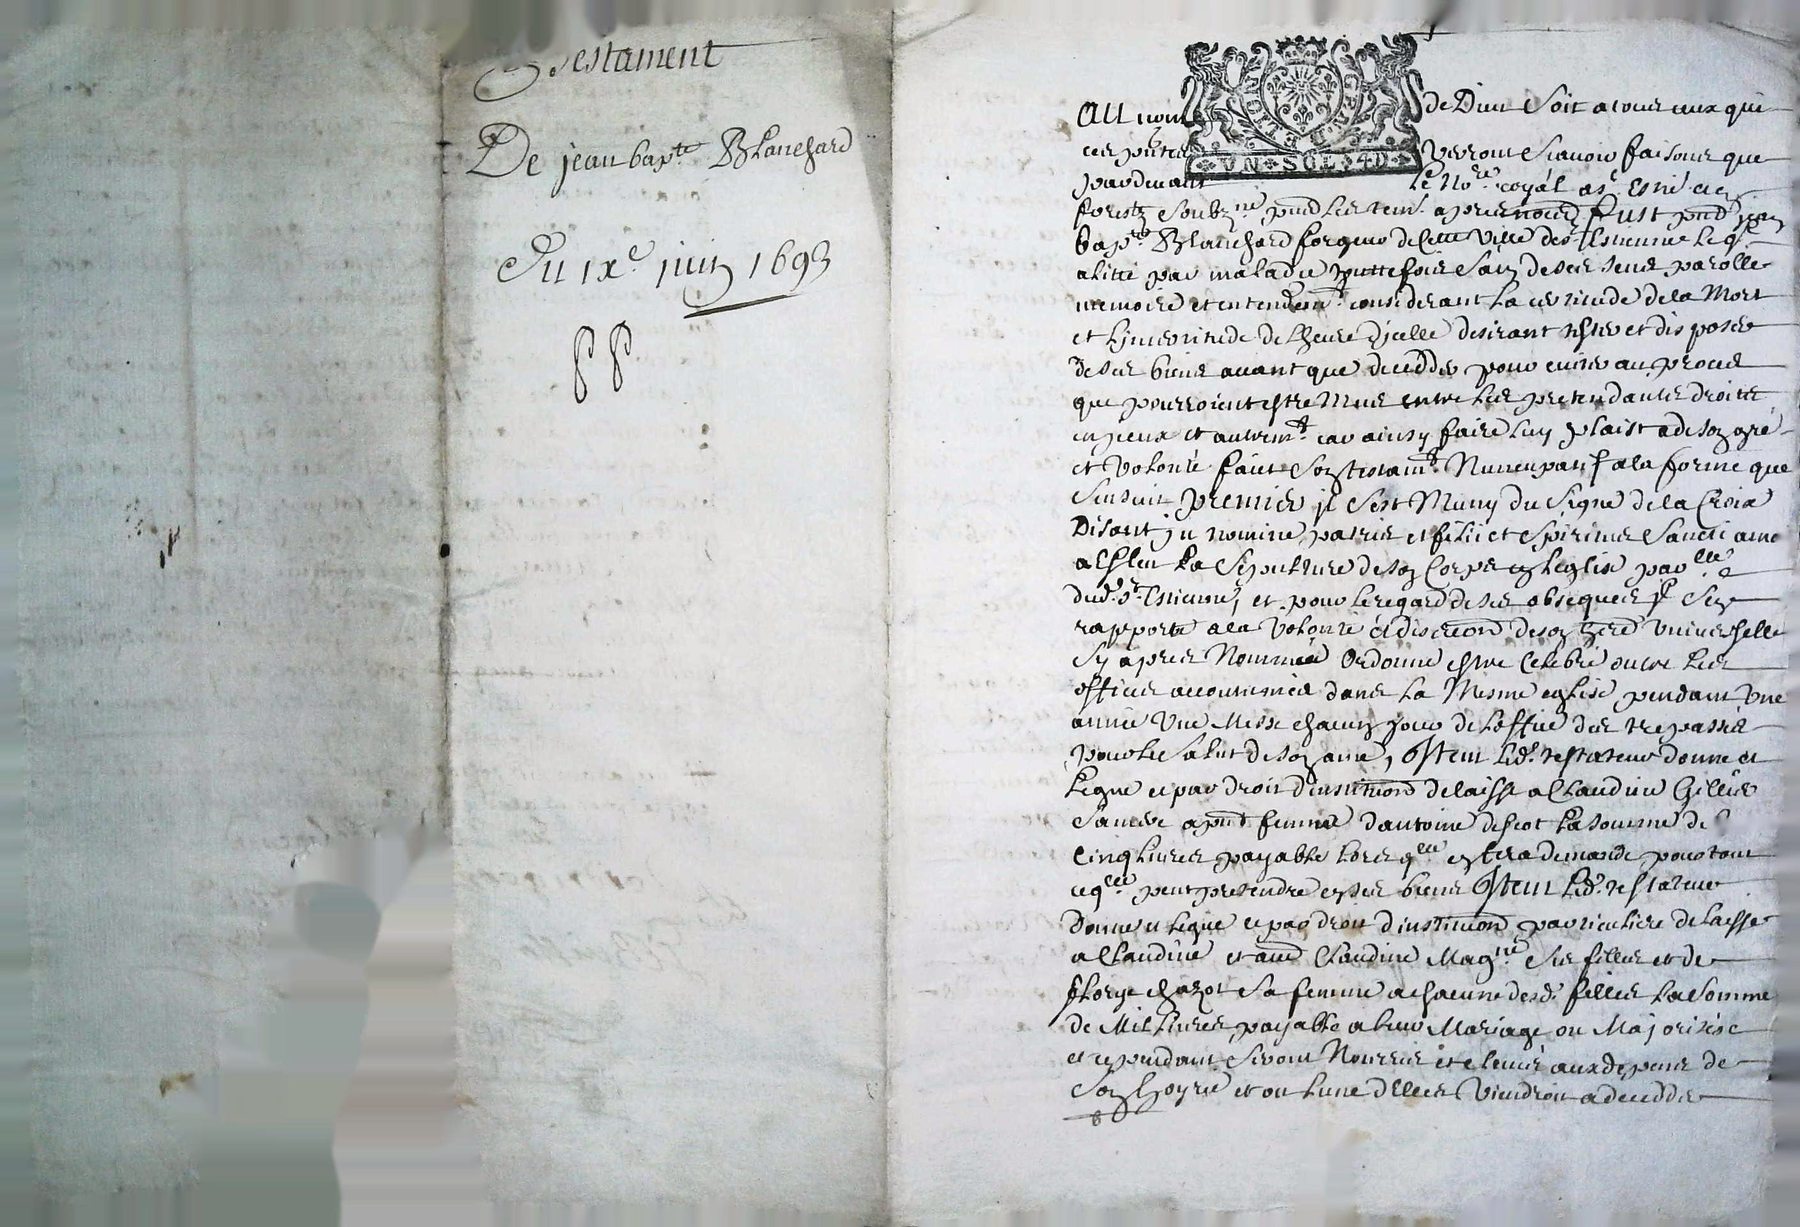 Testament
De jean bapte Blanchard
Du IXe juin 1693
Au nom de Dieu Soit a tous ceux qui
ces pntes verront Scavoir faisons que
pardevant le Nore royal a St Esne en
forestz Soubzne pnd les tem. apres nommez fust pnt jean
bapte Blanchard forgeur de Cette Ville de St Estienne Leql
alitté par maladie touttefois Sain de ses sens parolle
memoire et entendemt considerant La certitude de la Mort
et Lincertitude de Lheure djcelle desirant tester et disposer
de ses biens avant que decedder pour eviter au proces
que pourroient estre Meus entre Les pretendants droits
en jceux et autremt car ainsy faire Luy plaist a de son gré
et volonté faict Son testamt Nuncupatif a la forme que
Sensuit premier jl Sest Muny du Signe de la Croix
Disant jn nomine patris et filii et Spiritus Sancti ame
a Esleu La Sepulture de Son Corps en Leglise parlle
dud. St Estienne, et pour Le regard de ses obseques jl Sen
rapporte a la Volonté et discretion de son here universelle
Sy apres Nommée Ordonne estre Celebré outre Les
offices accoutumés dans La Mesme eglise pendant une
année une Messe chacun jour de Loffice des trepasses
pour Le Salut de son ame, Jtem Led. testateur donne et
Legue et par droit dinstitution delaisse a Claudine Gillier
Sa apnt femme dantoine Descot La Somme de
Cinq Livres payable Lors qlle en fera demande pour tout
ce qlle peut pretendre en ses biens Jtem Led. testateur
Donne et Legue et par droit dinstitution particuliere delaisse
a Claudine et aud Claudine Magne Ses filles et de
florye chazot Sa femme a chacune desd. filles La Somme
de Mil Livres payable a Leur Mariage ou Majorité
et cependant Seront Nourries et elevés aux depens de
Son hoyrie et ou Lune delles Viendroit a decedder